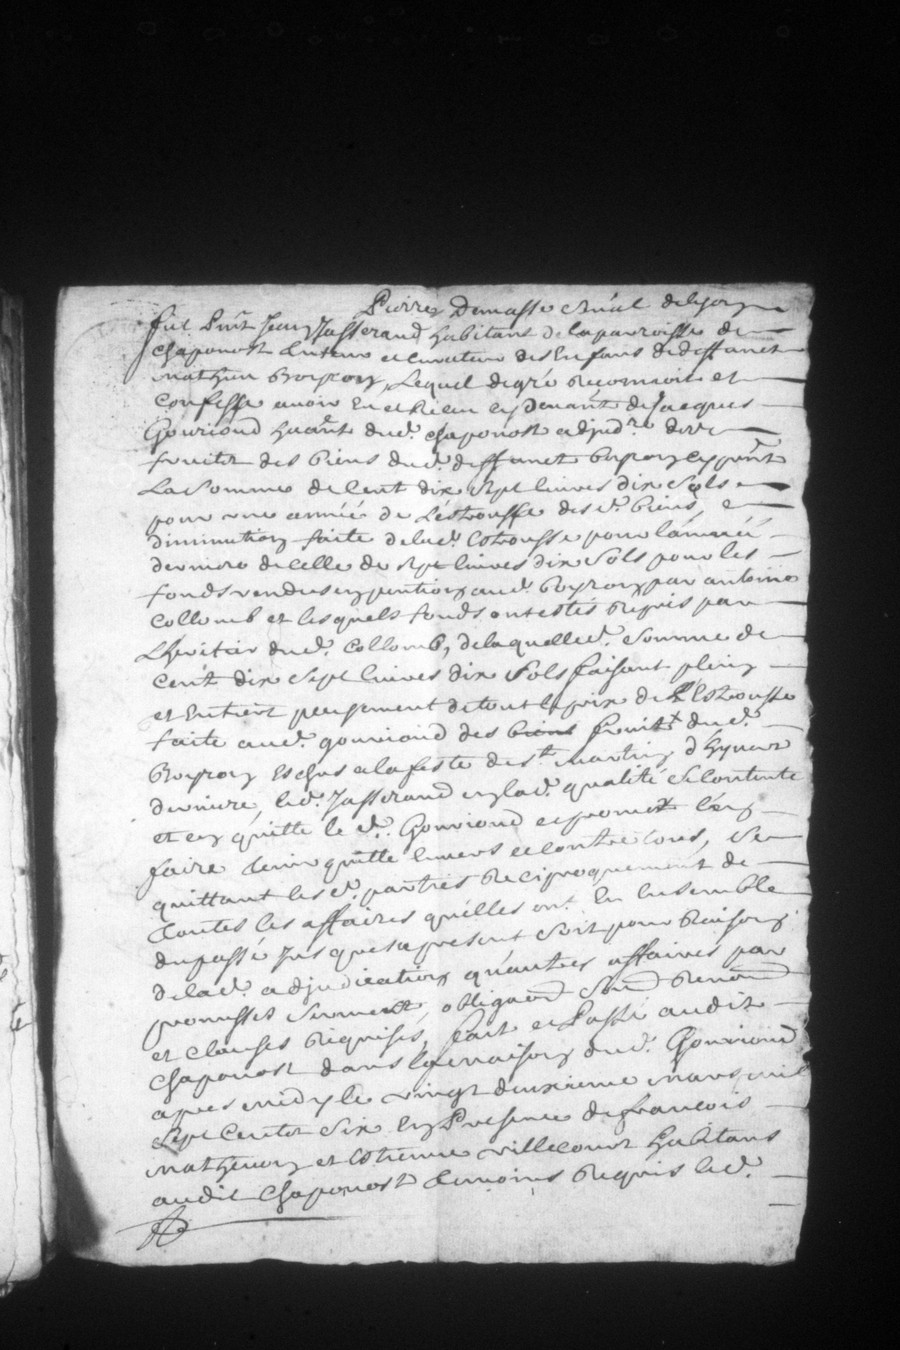 Pierre Demasse
fut pnt Jean Jasserand habitant de la parroisse de
Chaponost tuteur et curateur des Enfans de deffunct
Mathieu Boyron, Lequel de gré Reconnoit et
confesse avoir Eu et Receu cy devant de Jacques
Gouriond hant dud. chaponost adjudre des
fruitct des biens dud. deffunct boyron cy pnt
La Somme de Cent dix sept livres dix Sols
pour une année de L'éstrousse des d. biens,
diminution faite de lad. Estrousse pour lannée
derniere de celle de sept livres dix Sols pour les
fonds vendus en pention aud. Boyron par antoine
Collomb et lesquels fonds ont estés Repris par
L'heritier dud. Collomb, de laquelle d. Somme de
Cent dix sept livres dix Sols faisant plein
et Entiert payement de tout le prix de L'Estrousse
faite aud. gouriond des fruitt dud.
Boyron Eschus a la feste de st Martin d'hyvert
derniere led. Jasserand en lad. qualité Se Contente
et en quitte le d. Gouriond et promet l'en
faire tenir quitte Envers et contre tous, Se
quittant les d. partiës Reciproquement de
Toutes les affaires qu'elles ont Eu Ensemble
du passé Jusques a present Soit pour Raison
de lad. adjudication qu'autres affaires par
promesses Serment, obligaon Soud Renond
et clauses Requises, fait et Passé audit
Chaponost dans la maison dud. Gouriond
apres midy le vingt deuxieme mars mil
Sept Centct Six En Presence de francois
Mathevon et Estienne villecourt habitans
audit Chaponost temoins Requis le d.